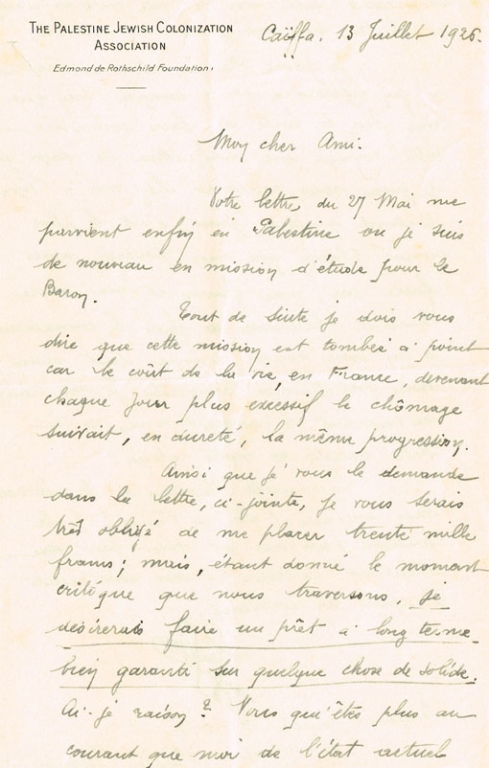 THE PALESTINE JEWISH COLONIZATION
ASSOCIATION
Edmond de Rothschild Foundation
Caïffa. 13 Juillet 1926.
Mon cher Ami.
Votre lettre, du 27 Mai me
parvient enfin en Palestine ou je suis
de nouveau en mission d'étude pour le
Baron.
Tout de suite je dois vous
dire que cette mission est tombée à point
car le coût de la vie, en France, devenant
chaque jour plus excessif le chômage
suivait, en dureté, la même progression.
Ainsi que je vous le demande
dans la lettre, ci-jointe, je vous serais
très obligé de me placer trente mille
francs; mais, étant donné le moment
critique que nous traversons, je
désirerais faire un prêt à long terme
bien garanti sur quelque chose de solide.
Ai-je raison? Vous qu'êtes plus au
courant que moi de l'état actuel